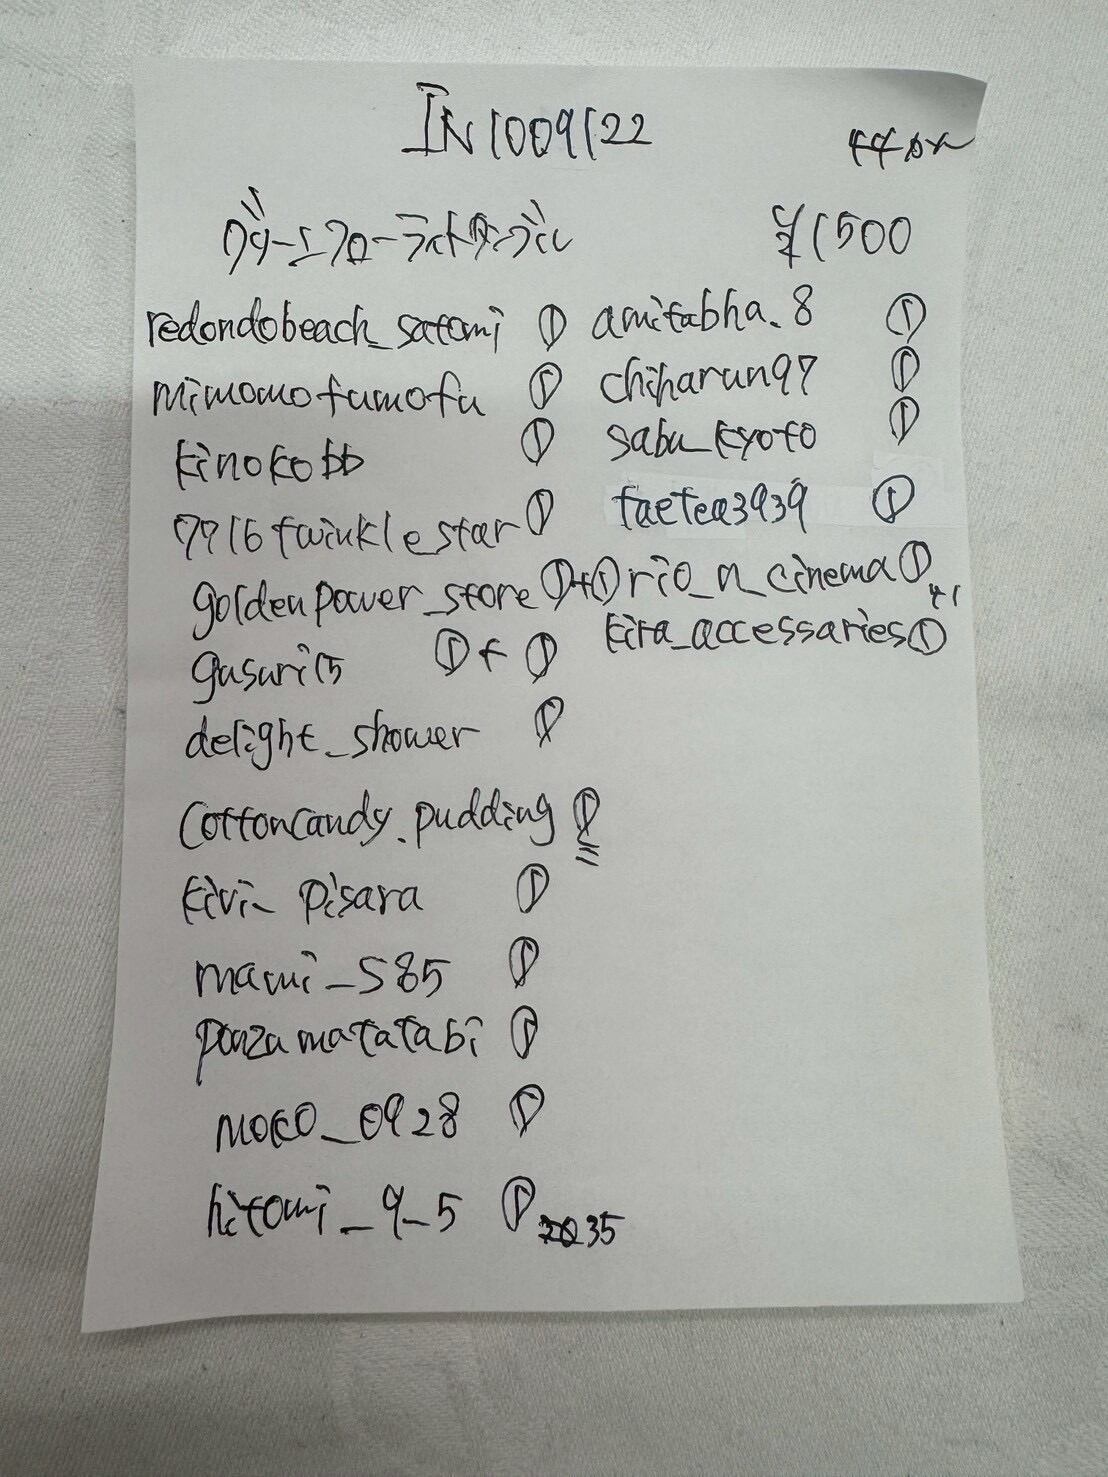 IN1009122
¥1500
redondobeach_satomi ①
mimomofumofu ①
kinokobb ①
7716twinklestar ①
goldenpower_store ①+①
gusuri15 ①+①
delight_shower ①
cottoncandy.pudding ①
kivi_pisara ①
mami_s85 ①
ponzamatatabi ①
moko_0928 ①
hitomi_9_5 ① 35
amitabha.8 ①
chiharun97 ①
sabu_kyoto ①
taetea3939 ①
rio_n_cinema ①
kira_accessaries ①